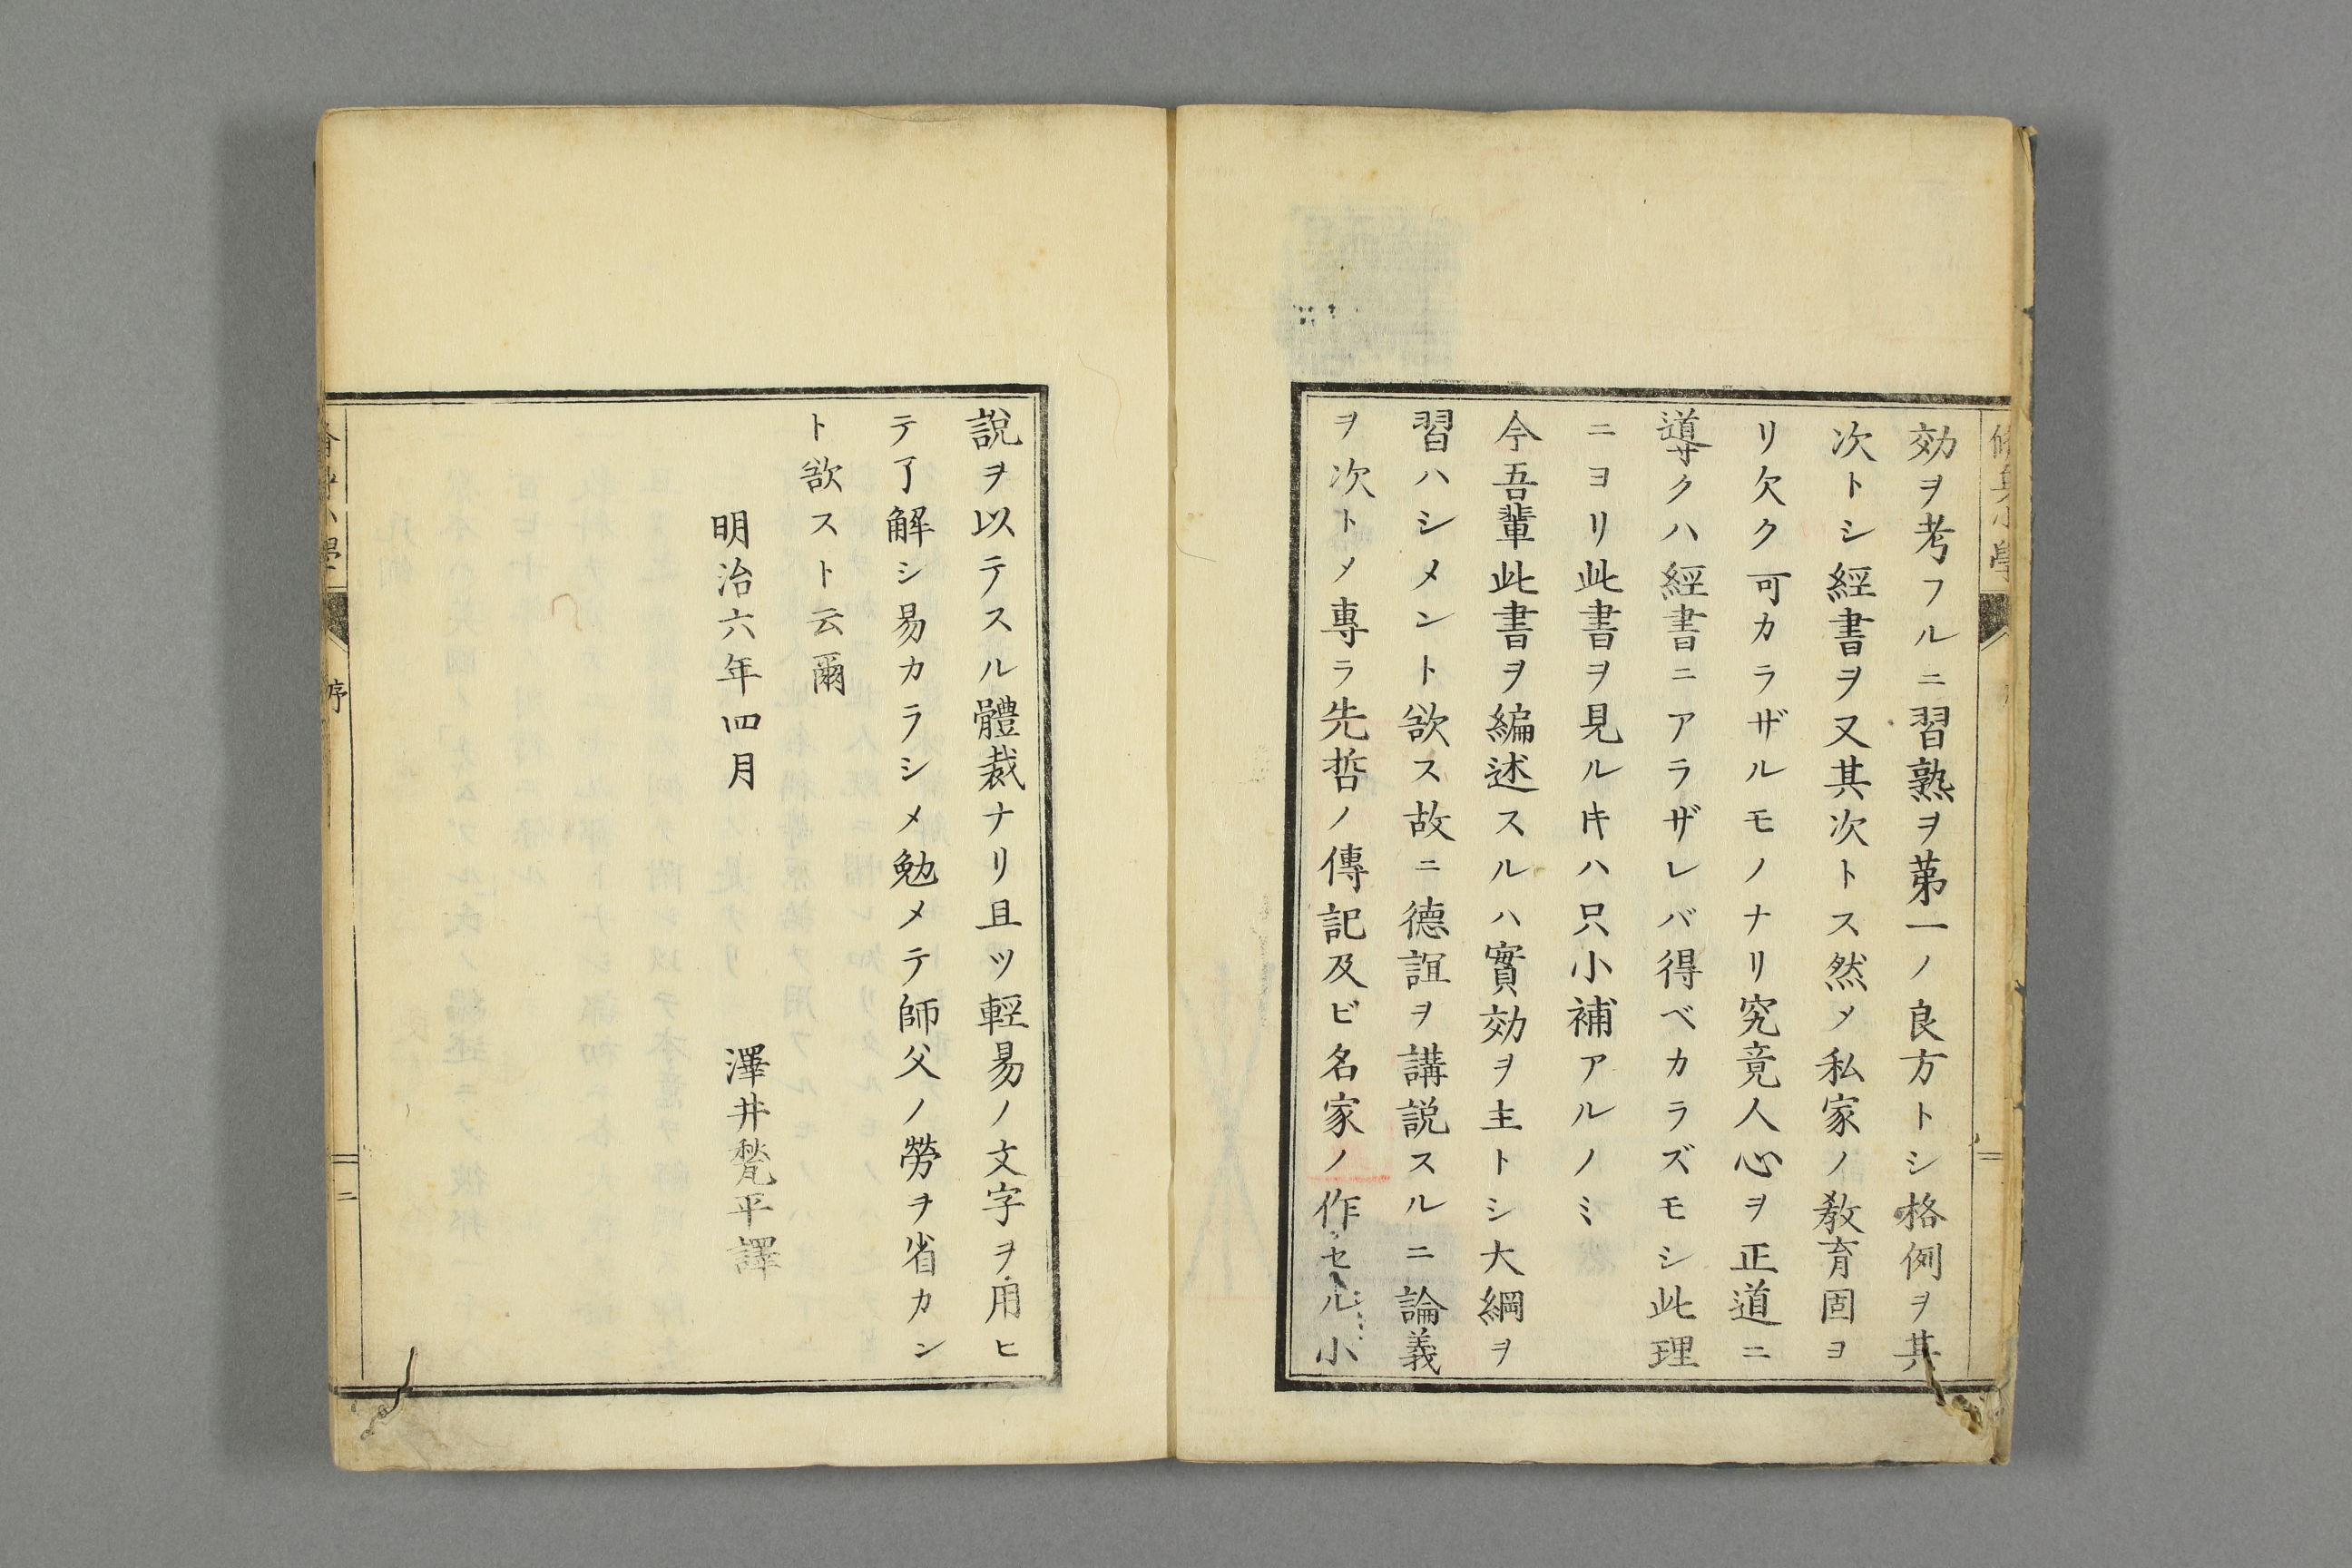 効ヲ考フルニ習熟ヲ苐一ノ良方トシ格例ヲ其
次トシ經書ヲ又其次トス然〆私家ノ敎育固ヨ
リ欠ク可カラザルモノナリ究竟人心ヲ正道ニ
導クハ經書ニアラザレバ得ベカラズモシ此理
ニヨリ此書ヲ見ルキハ只小補アルノミ
今吾輩此書ヲ編述スルハ實効ヲ主トシ大綱ヲ
習ハシメント欲ス故ニ德誼ヲ講説スルニ論義
ヲ次ト〆專ラ先哲ノ傳記及ビ名家ノ作セル小
說ヲ以テスル體裁ナリ且ツ輕易ノ文字ヲ用ヒ
テ了解シ易カラシメ勉メテ師父ノ勞ヲ省カン
ト欲スト云爾
明治六年四月
澤井甃平譯
序
二